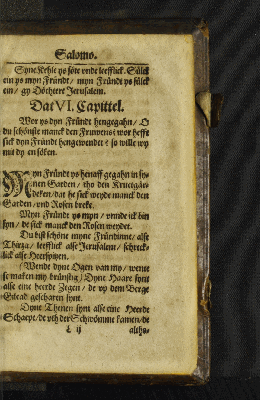 Salomo.
Syne Kehle ys söte vnde leefflick. Sülck
ein ys myn Fründt / myn Fründt ys sülck
ein / gy Döchtere Jerusalem.
Dat VI. Capittel.
Wor ys dyn Fründt hengegahn / O
du schönste manck den Fruwens? wor hefft
sick dyn Fründt hengewendet? so wille wy
mit dy en söken.
Myn Fründt ys henaff gegahn in sy-
nen Garden / tho den Krudegär-
deken / dat he sick weyde manck den
Garden / vnd Rosen breke.
Myn Fründt ys myn / vnnde ick bin
syn / de sick manck den Rosen weydet.
Du bist schöne myne Fründinne / alse
Thirza / leefflick alse Jerusalem / schreck-
lick alse Heerspitzen.
(Wende dyne Ogen van my / wente
se maken my brünstig) Dyne Haare synt
alse eine heerde Zegen / de vp dem Berge
Gilead gescharen synt.
Dyne Thenen synt alse eine Heerde
Schaepe / de vth der Schwömme kamen / de
t ij
altho-